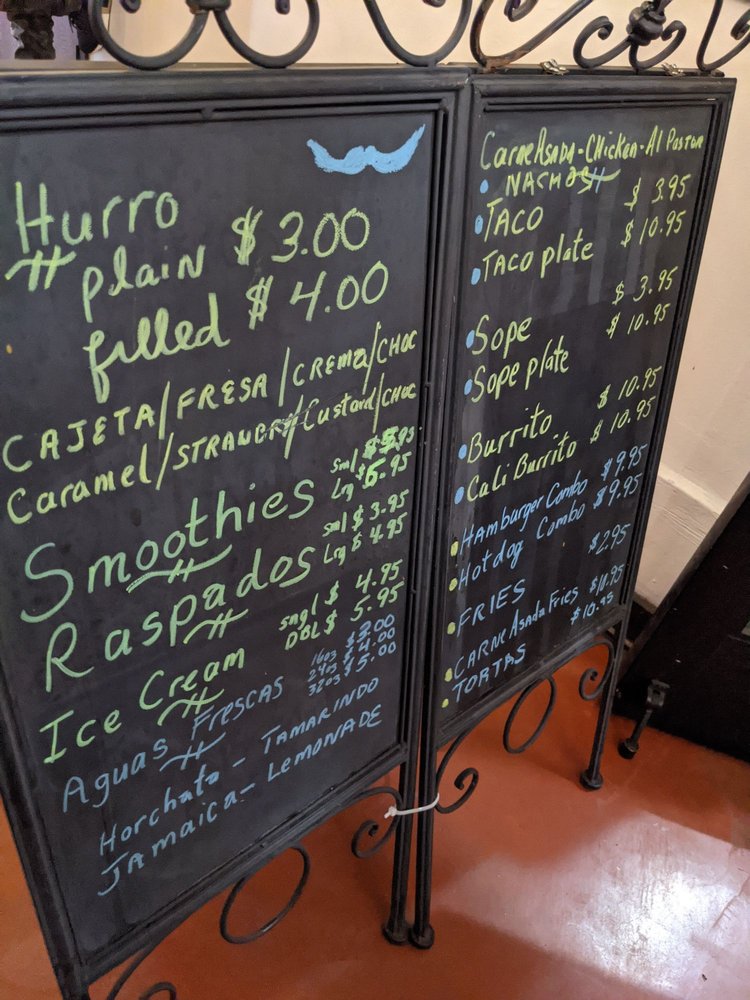 Hurro
plain $3.00
filled $4.00
CAJETA/FRESA/CREMA/CHOC
Caramel/STRAWBRY/Custard/CHOC
Smoothies sml
Lrg $6.95
Raspados sml $3.95
Lrg $4.95
Ice Cream sngl $4.95
DBL $5.95
Aguas Frescas 16oz $3.00
24oz $4.00
32oz $5.00
Horchata - TAMARINDO
JAMAICA - LEMONADE
CARNE ASADA - CHicken - Al PASTOR
• NACHOS
• TACO $3.95
• TACO plate $10.95
• Sope $3.95
• Sope plate $10.95
• Burrito $10.95
• Cali Burrito $10.95
• HAMburger Combo $9.95
• Hotdog Combo $9.95
• FRIES $2.95
• CARNE ASADA FRIES $10.95
• TORTAS $10.95